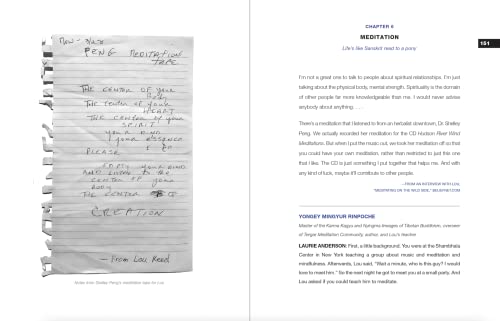 Mon - 3/20
PENG MEDITATION
TAPE
THE CENTER OF your
Body
The center of your
HEART
THE CENTER of your
SPIRIT
your MIND
your essence
PLEASE
EMPTY your MIND
AND LISTEN to the
center of your
Body
THE CENTER
CREATION
— From Lou Reed
Notes from Shelley Peng's meditation tape for Lou.
CHAPTER 6
MEDITATION
Life's like Sanskrit read to a pony
151
I'm not a great one to talk to people about spiritual relationships. I'm just
talking about the physical body, mental strength. Spirituality is the domain
of other people far more knowledgeable than me. I would never advise
anybody about anything. . . .
There's a meditation that I listened to from an herbalist downtown, Dr. Shelley
Peng. We actually recorded her meditation for the CD Hudson River Wind
Meditations. But when I put the music out, we took her meditation off so that
you could have your own meditation, rather than restricted to just this one
that I like. The CD is just something I put together that helps me. And with
any kind of luck, maybe it'll contribute to other people.
—FROM AN INTERVIEW WITH LOU,
"MEDITATING ON THE WILD SIDE," BELIEFNET.COM
YONGEY MINGYUR RINPOCHE
Master of the Karma Kagyu and Nyingma lineages of Tibetan Buddhism, overseer
of Tergar Meditation Community, author, and Lou's teacher
LAURIE ANDERSON: First, a little background. You were at the Shambhala
Center in New York teaching a group about music and meditation and
mindfulness. Afterwards, Lou said, "Wait a minute, who is this guy? I would
love to meet him." So the next night he got to meet you at a small party. And
Lou asked if you could teach him to meditate.